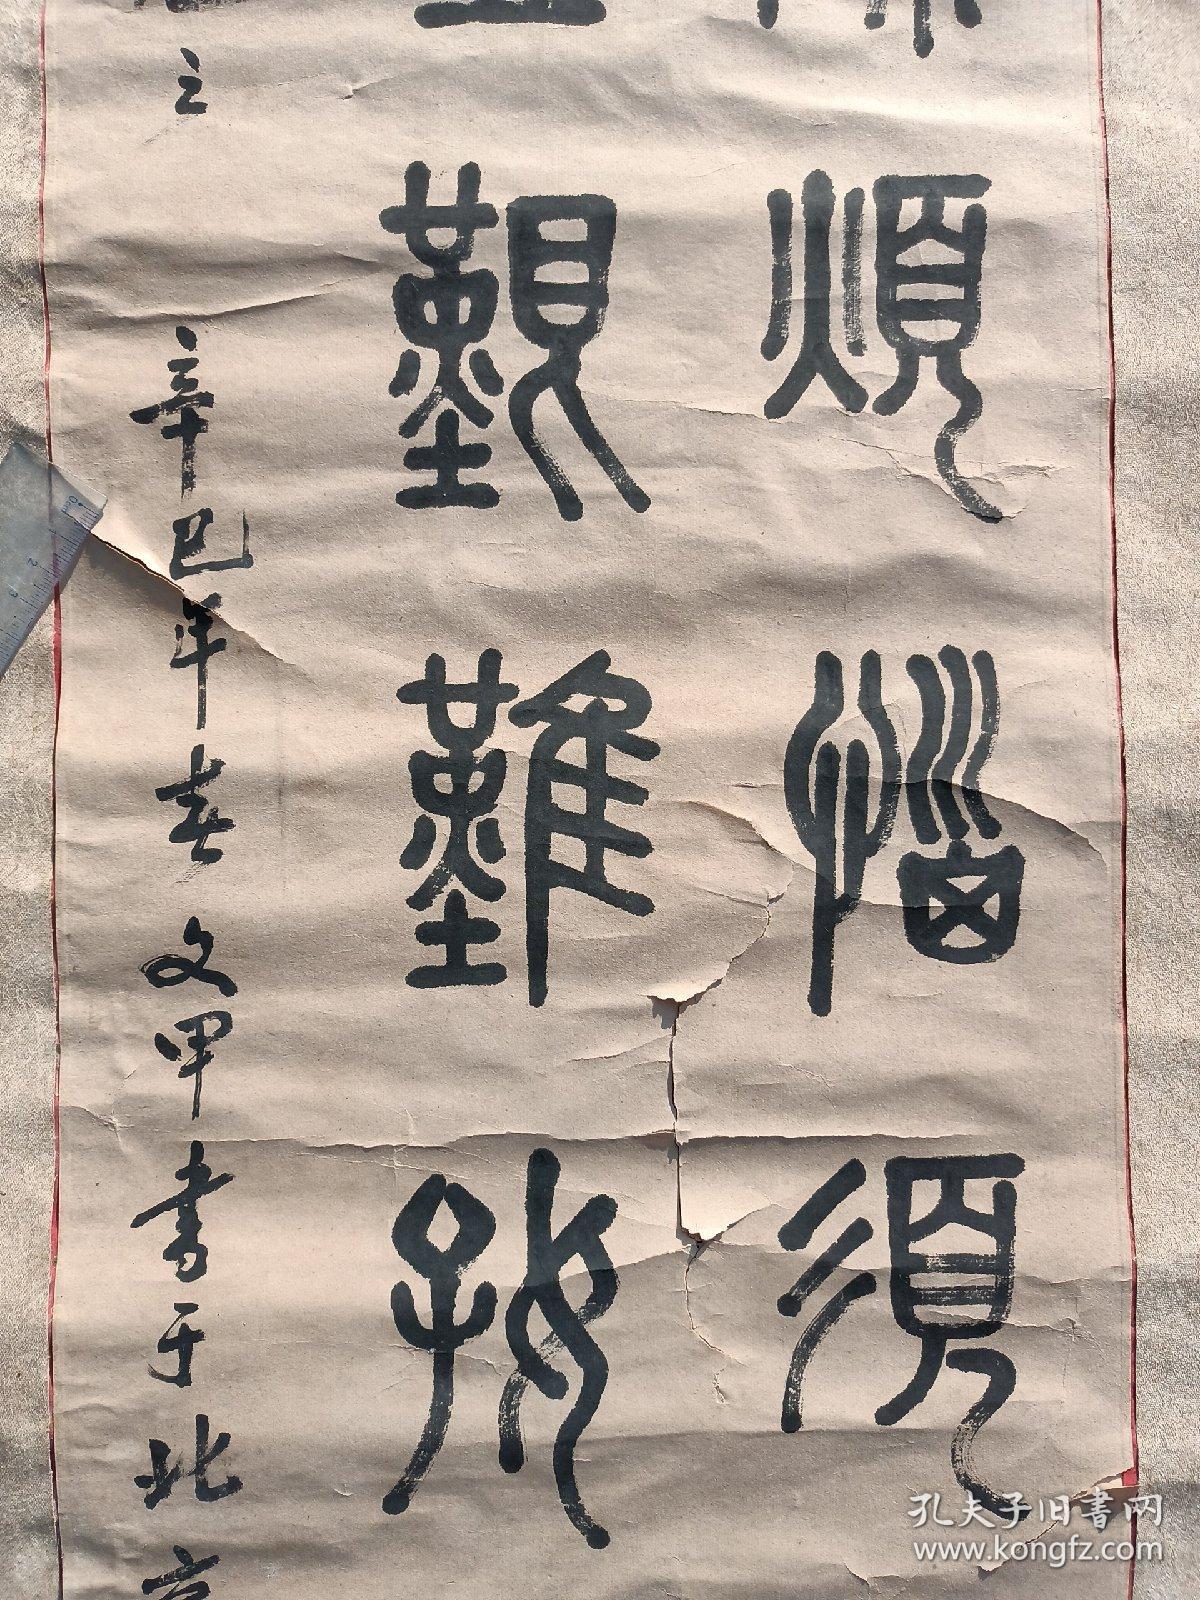 煩惱須
艱難好
之 辛巳年春文甲書于北京
孔夫子旧書网
www.kongfz.com